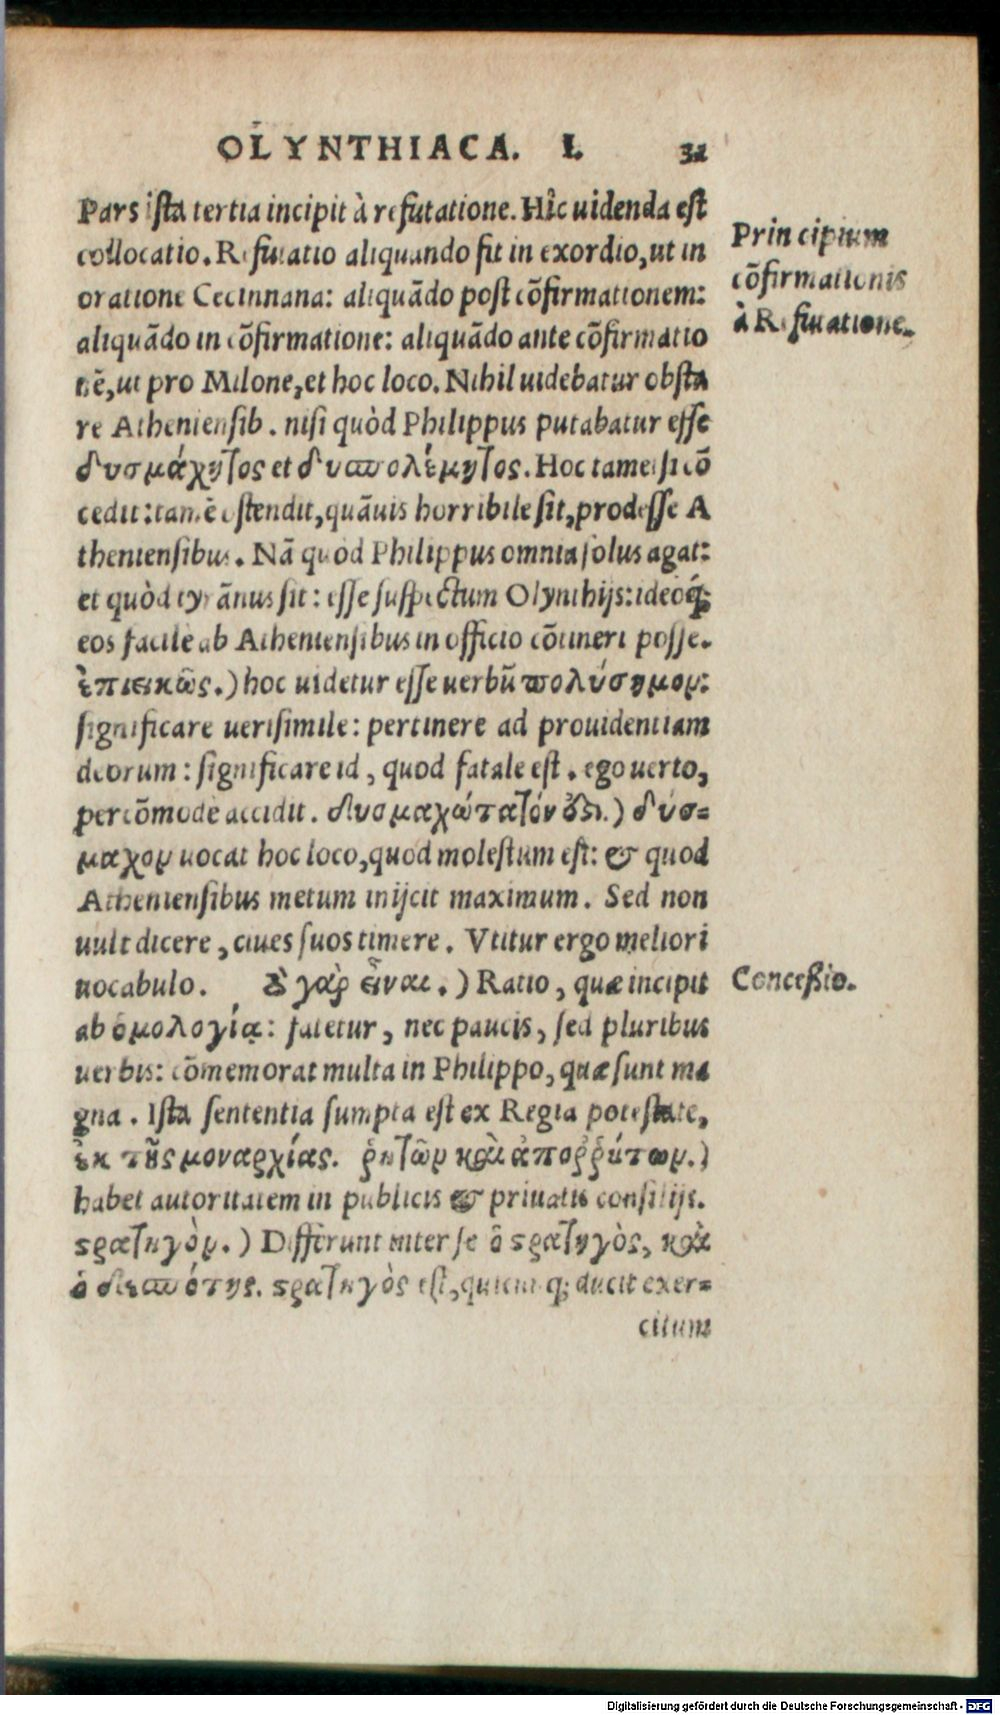 OLYNTHIACA. I. 32
Pars ista tertia incipit à refutatione. Hîc uidenda est
collocatio. Refutatio aliquando fit in exordio, ut in
oratione Cecinnana: aliquãdo post cõfirmationem:
aliquãdo in cõfirmatione: aliquãdo ante cõfirmatio
nẽ, ut pro Milone, et hoc loco. Nihil uidebatur obsta
re Atheniensib. nisi quòd Philippus putabatur esse
δυσμάχητος et δυσπολέμητος. Hoc tametsi cõ
cedit: tamẽ ostendit, quãuis horribile sit, prodesse A
theniensibus. Nã quod Philippus omnia solus agat:
et quòd tyrãnus sit: esse suspectum Olynthijs: ideoq́;
eos facile ab Atheniensibus in officio cõtineri posse.
ἐπιεικῶς.) hoc uidetur esse uerbũ πολύσημον:
significare uerisimile: pertinere ad prouidentiam
deorum: significare id, quod fatale est. ego uerto,
percõmodè accidit. δυσμαχώτατόν ὅζι.) δύσ=
μαχον uocat hoc loco, quod molestum est: & quod
Atheniensibus metum inijcit maximum. Sed non
uult dicere, ciues suos timere. Vtitur ergo meliori
uocabulo. ὃ γὰρ εἶναι.) Ratio, quæ incipit
Principium
cõfirmationis
à Refutatione.
Concessio.
ab ὁμολογίᾳ: fatetur, nec paucis, sed pluribus
uerbis: cõmemorat multa in Philippo, quæ sunt ma
gna. Ista sententia sumpta est ex Regia potestate,
ἐκ τῆς μοναρχίας. ῥητῶν καὶ ἀποῤῥήτων.)
habet autoritatem in publicis & priuatis consilijs.
στρατηγὸν.) Differunt inter se ὁ στρατηγὸς, καὶ
ὁ δεσπότης. στρατηγὸς est, quicunq; ducit exer=
citum
Digitalisierung gefördert durch die Deutsche Forschungsgemeinschaft - DFG